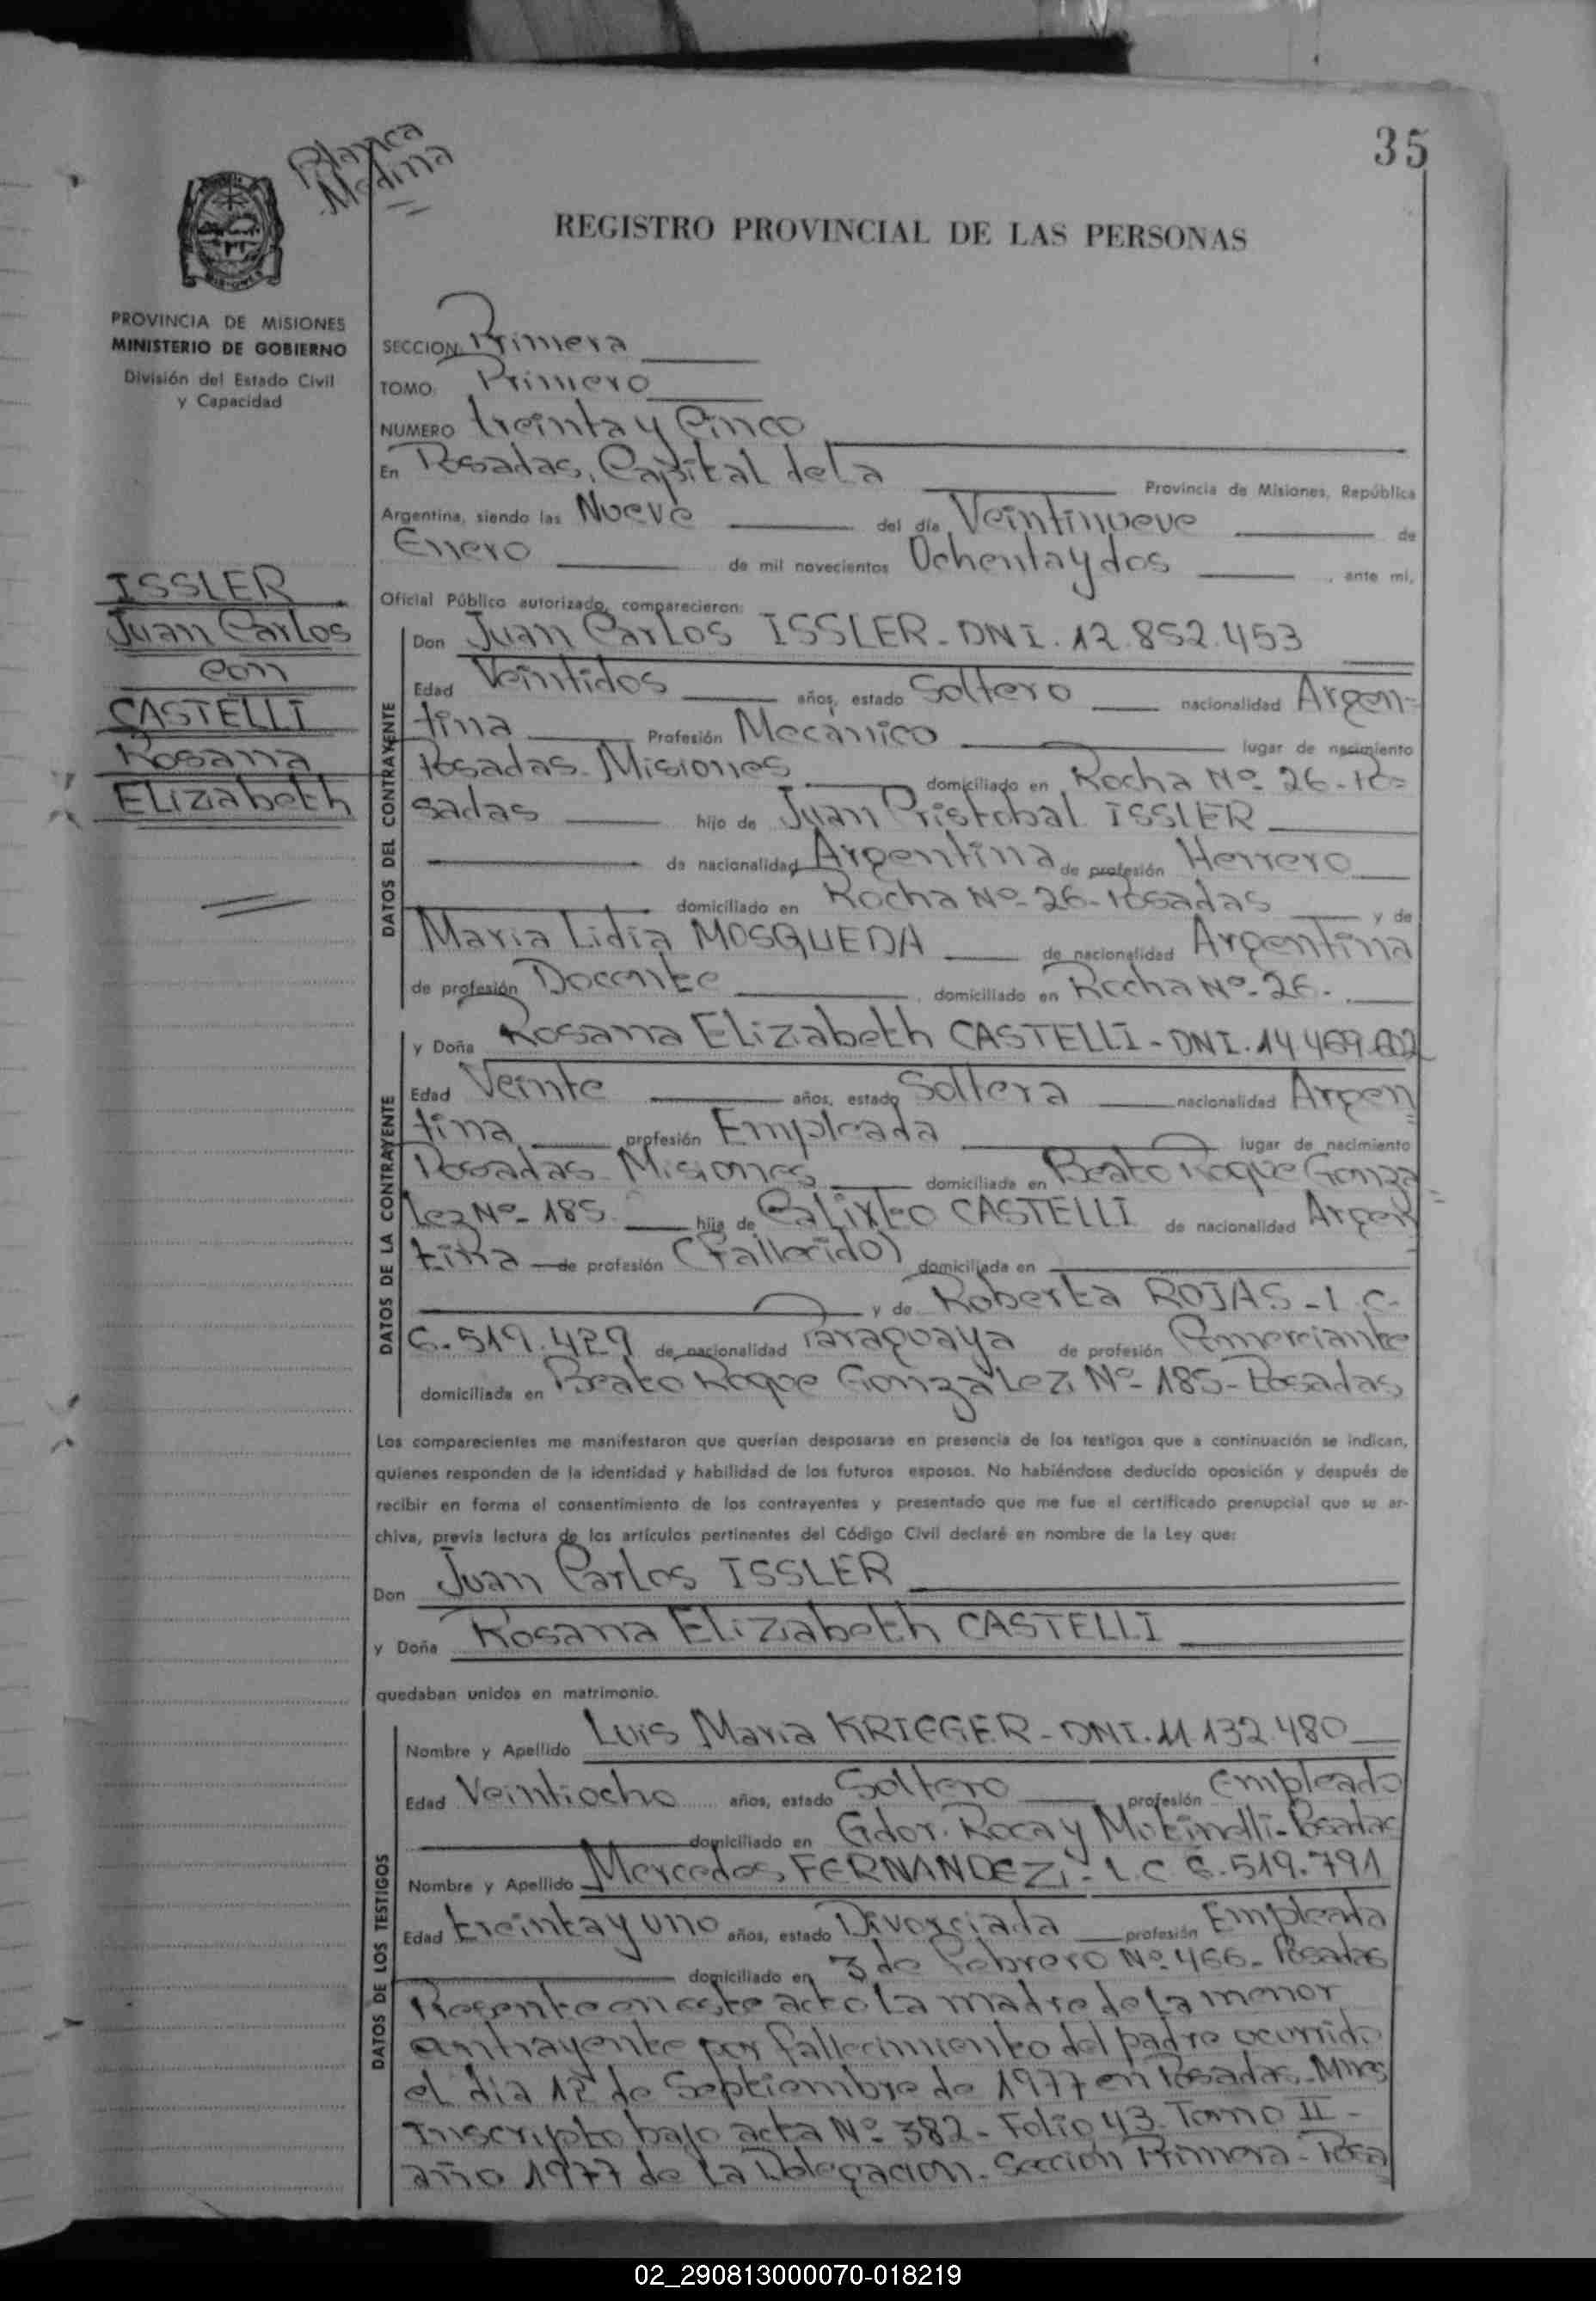 35
Blanca
Medina
REGISTRO PROVINCIAL DE LAS PERSONAS
MISIONES
PROVINCIA DE MISIONES
MINISTERIO DE GOBIERNO
División del Estado Civil
y Capacidad
ISSLER
Juan Carlos
con
CASTELLI
Rosana
Elizabeth
SECCION Primera
TOMO: Primero
NUMERO treinta y Cinco
En Posadas, Capital de La Provincia de Misiones, República
Argentina, siendo las Nueve del día Veintinueve de
Enero de mil novecientos Ochenta y dos, ante mi,
Oficial Público autorizado, comparecieron:
DATOS DEL CONTRAYENTE
Don Juan Carlos ISSLER - DNI. 12.852.453
Edad Veintidos años, estado Soltero nacionalidad Argen=
tina Profesión Mecánico lugar de nacimiento
Posadas - Misiones domiciliado en Rocha Nº 26 - Po=
sadas hijo de Juan Cristobal ISSLER
de nacionalidad Argentina de profesión Herrero
domiciliado en Rocha Nº 26 - Posadas y de
Maria Lidia MOSQUEDA de nacionalidad Argentina
de profesión Docente, domiciliado en Rocha Nº 26.
DATOS DE LA CONTRAYENTE
y Doña Rosana Elizabeth CASTELLI - DNI. 14.469.602
Edad Veinte años, estado Soltera nacionalidad Argen=
tina profesión Empleada lugar de nacimiento
Posadas - Misiones domiciliada en Beato Roque Gonza=
lez Nº 185. hija de Calixto CASTELLI de nacionalidad Argen
tina de profesión (Fallecido) domiciliada en
y de Roberta ROJAS - L.C.
6.519.429 de nacionalidad Paraguaya de profesión Comerciante
domiciliada en Beato Roque González Nº 185 - Posadas
Los comparecientes me manifestaron que querían desposarse en presencia de los testigos que a continuación se indican,
quienes responden de la identidad y habilidad de los futuros esposos. No habiéndose deducido oposición y después de
recibir en forma el consentimiento de los contrayentes y presentado que me fue el certificado prenupcial que se ar-
chiva, previa lectura de los artículos pertinentes del Código Civil declaré en nombre de la Ley que:
Don Juan Carlos ISSLER
y Doña Rosana Elizabeth CASTELLI
quedaban unidos en matrimonio.
DATOS DE LOS TESTIGOS
Nombre y Apellido Luis Maria KRIEGER - DNI. 11.132.480
Edad Veintiocho años, estado Soltero profesión Empleado
domiciliado en Gdor. Roca y Motinelli - Posadas
Nombre y Apellido Mercedes FERNANDEZ - L.C 6.519.791
Edad treinta y uno años, estado Divorciada profesión Empleada
domiciliado en 3 de Febrero Nº 466 - Posadas
Presente en este acto La madre de La menor
contrayente por fallecimiento del padre ocurrido
el dia 12 de Septiembre de 1977 en Posadas - Mnes
Inscripto bajo acta Nº 382 - Folio 43 - Tomo II -
año 1977 de La Delegacion - Sección Primera - Posa
02_290813000070-018219